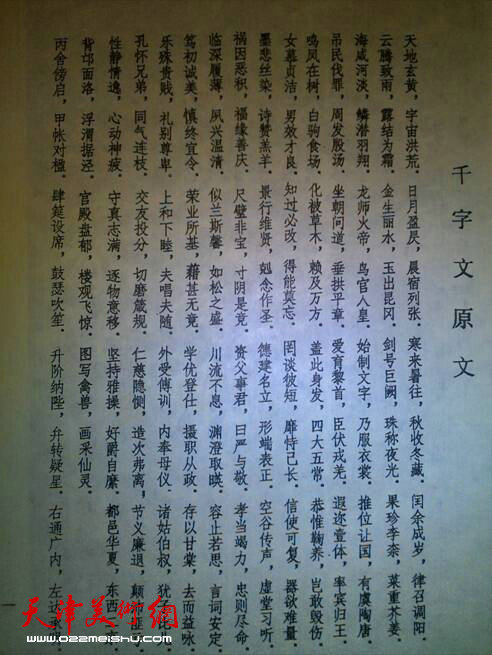 千字文原文
天地玄黄，宇宙洪荒．日月盈昃，晨宿列张．寒来暑往，秋收冬藏．闰余成岁，律召调阳．
云腾致雨，露结为霜．金生丽水，玉出昆冈．剑号巨阙，珠称夜光．果珍李柰，菜重芥姜．
海咸河淡，鳞潜羽翔．龙师火帝，鸟官人皇．始制文字，乃服衣裳．推位让国，有虞陶唐．
吊民伐罪，周发殷汤．坐朝问道，垂拱平章．爱育黎首，臣伏戎羌．遐迩壹体，率宾归王．
鸣凤在树，白驹食场．化被草木，赖及万方．盖此身发，四大五常．恭惟鞠养，岂敢毁伤．
女慕贞洁，男效才良．知过必改，得能莫忘．罔谈彼短，靡恃己长．信使可复，器欲难量．
墨悲丝染，诗赞羔羊．景行维贤，剋念作圣．德建名立，形端表正．空谷传声，虚堂习听．
祸因恶积，福缘善庆．尺璧非宝，寸阴是竞．资父事君，曰严与敬．孝当竭力，忠则尽命．
临深履薄，夙兴温凊．似兰斯馨，如松之盛．川流不息，渊澄取暎．容止若思，言词安定．
笃初诚美，慎终宜令．荣业所基，藉甚无竟．学优登仕，摄职从政．存以甘棠，去而益咏．
乐殊贵贱，礼别尊卑．上和下睦，夫唱夫随．外受傅训，内奉母仪．诸姑伯叔，犹子比
孔怀兄弟，同气连枝．交友投分，切磨箴规．仁慈隐恻，造次弗离．节义廉退，颠沛匪
性静情逸，心动神疲．守真志满，逐物意移．坚持雅操，好爵自縻．都邑华夏，东西
背邙面洛，浮渭据泾．宫殿盘郁，楼观飞惊．图写禽兽，画采仙灵．
丙舍傍启，甲帐对楹．肆筵设席，鼓瑟吹笙．升阶纳陛，弁转疑星．右通广内，左达承
天津美术网
www.022meishu.com